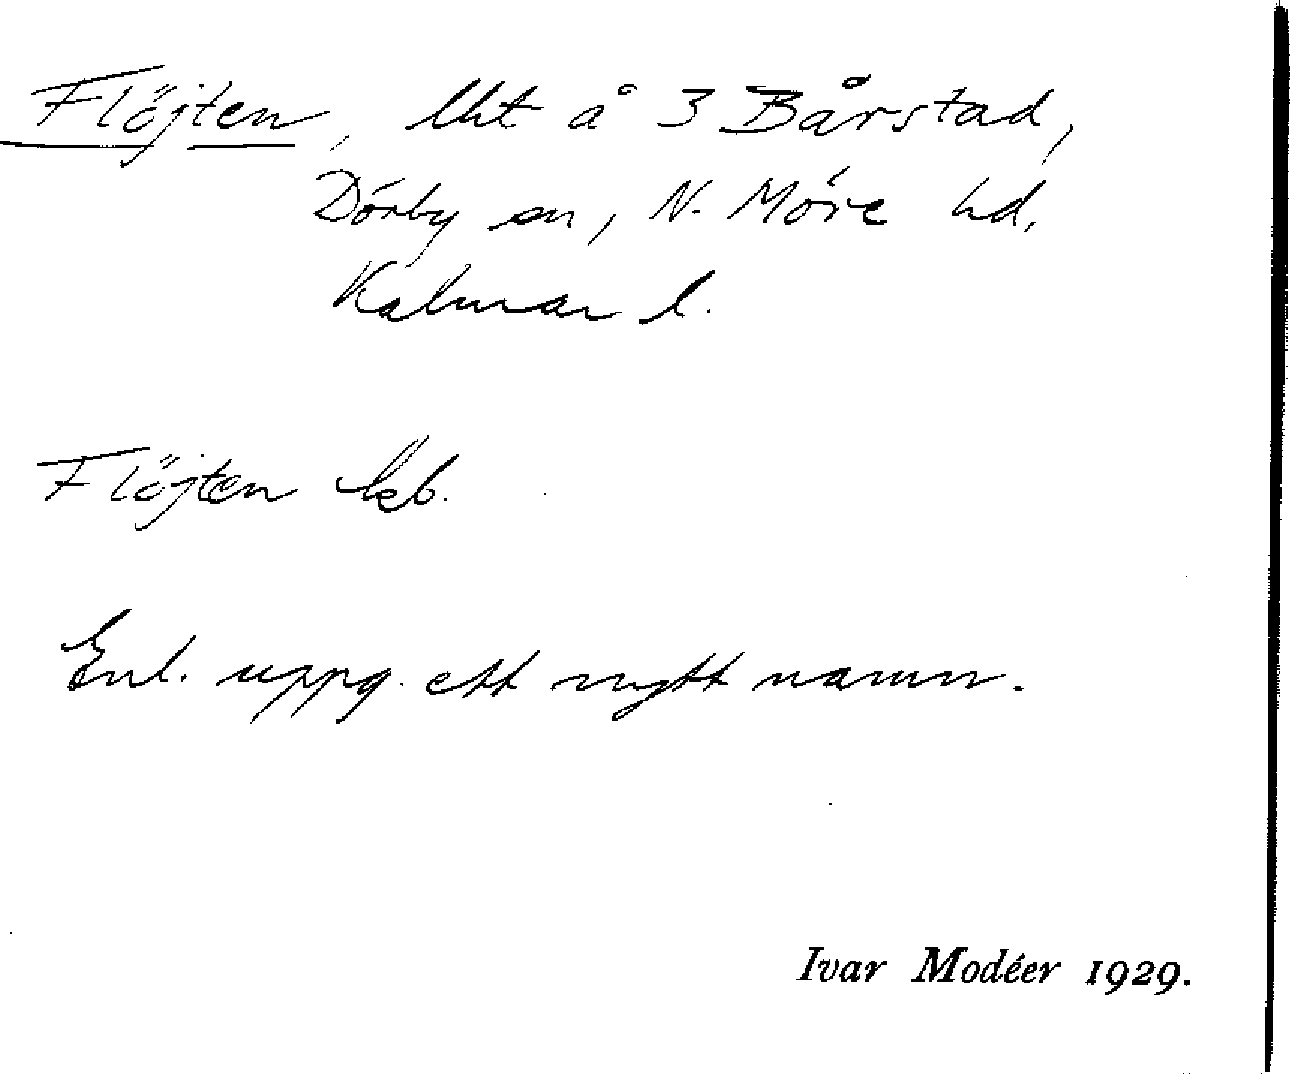 Flöjten, lht å 3 Bårstad,
Dörby sn, N. Möre hd,
Kalmar l.
Flöjten
Enl. uppg. ett nytt namn.
Ivar Modéer 1929.